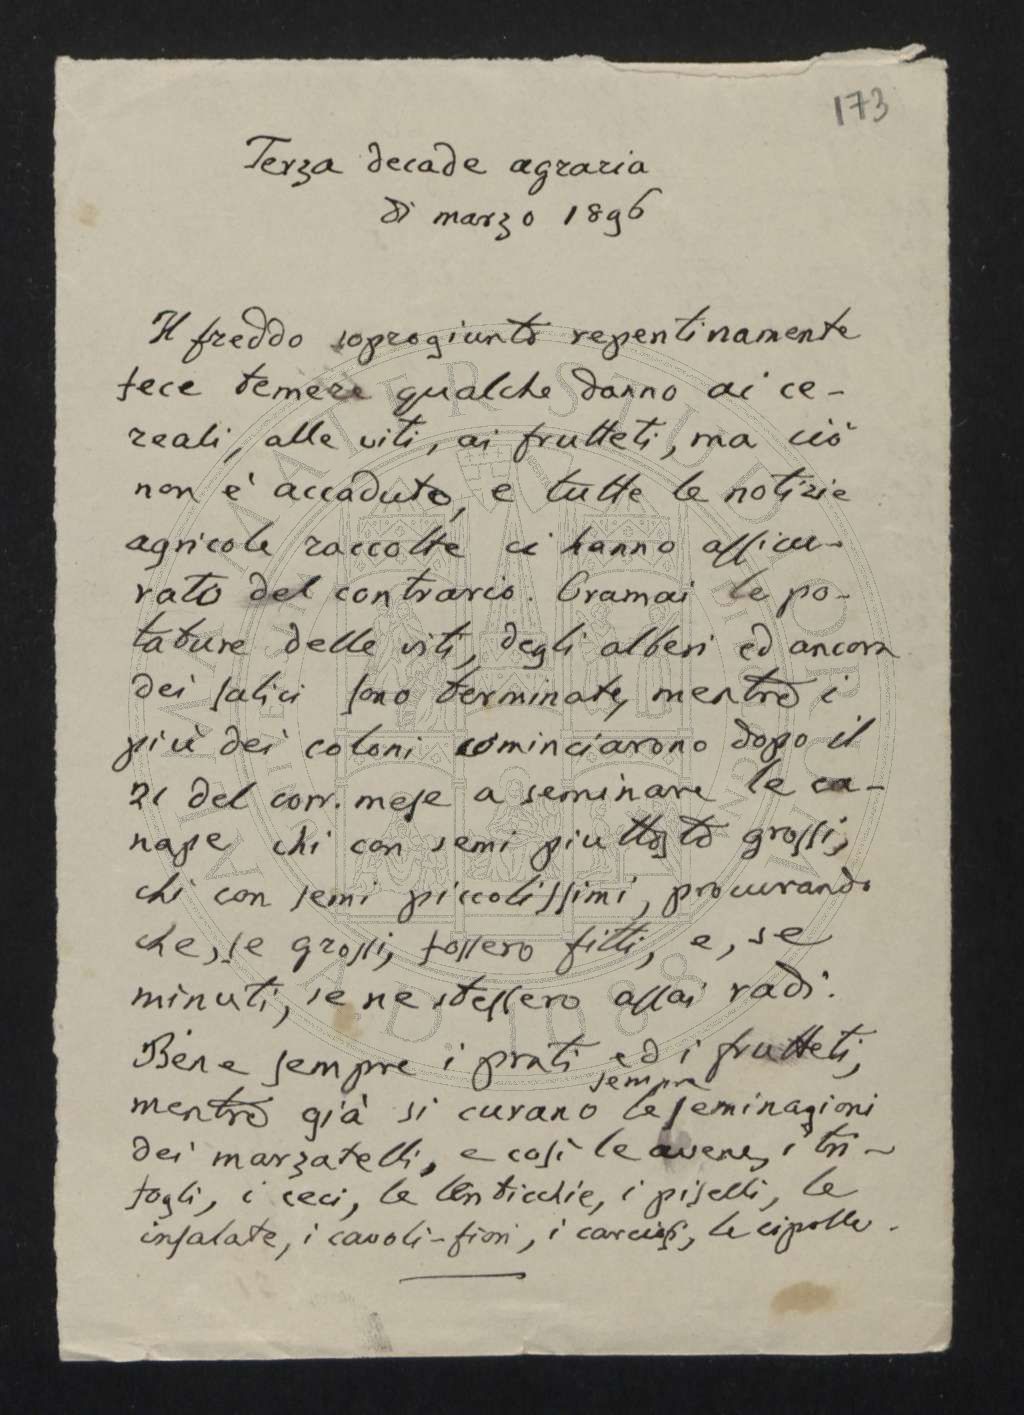 173
Terza decade agraria
di marzo 1896
Il freddo soprogiunto repentinamente
fece temere qualche danno ai ce-
reali, alle viti, ai frutteti, ma ciò
non è accaduto, e tutte le notizie
agricole raccolte ci hanno assicu-
rato del contrario. Oramai le po-
tature delle viti, degli alberi ed ancora
dei salici sono terminate, mentre i
più dei coloni cominciarono dopo il
21 del corr. mese a seminare le ca-
nape chi con semi piuttosto grossi,
chi con semi piccolissimi, procurando
che, se grossi, fossero fitti, e, se
minuti, se ne stessero assai radi.
Bene sempre i prati ed i frutteti,
sempre
mentre già si curano le seminagioni
dei marzatelli, e così le avene, i tri-
fogli, i ceci, le lenticchie, i piselli, le
insalate, i cavoli-fiori, i carciofi, le cipolle.
ALMA MATER STUDIORUM
A.D. 1088